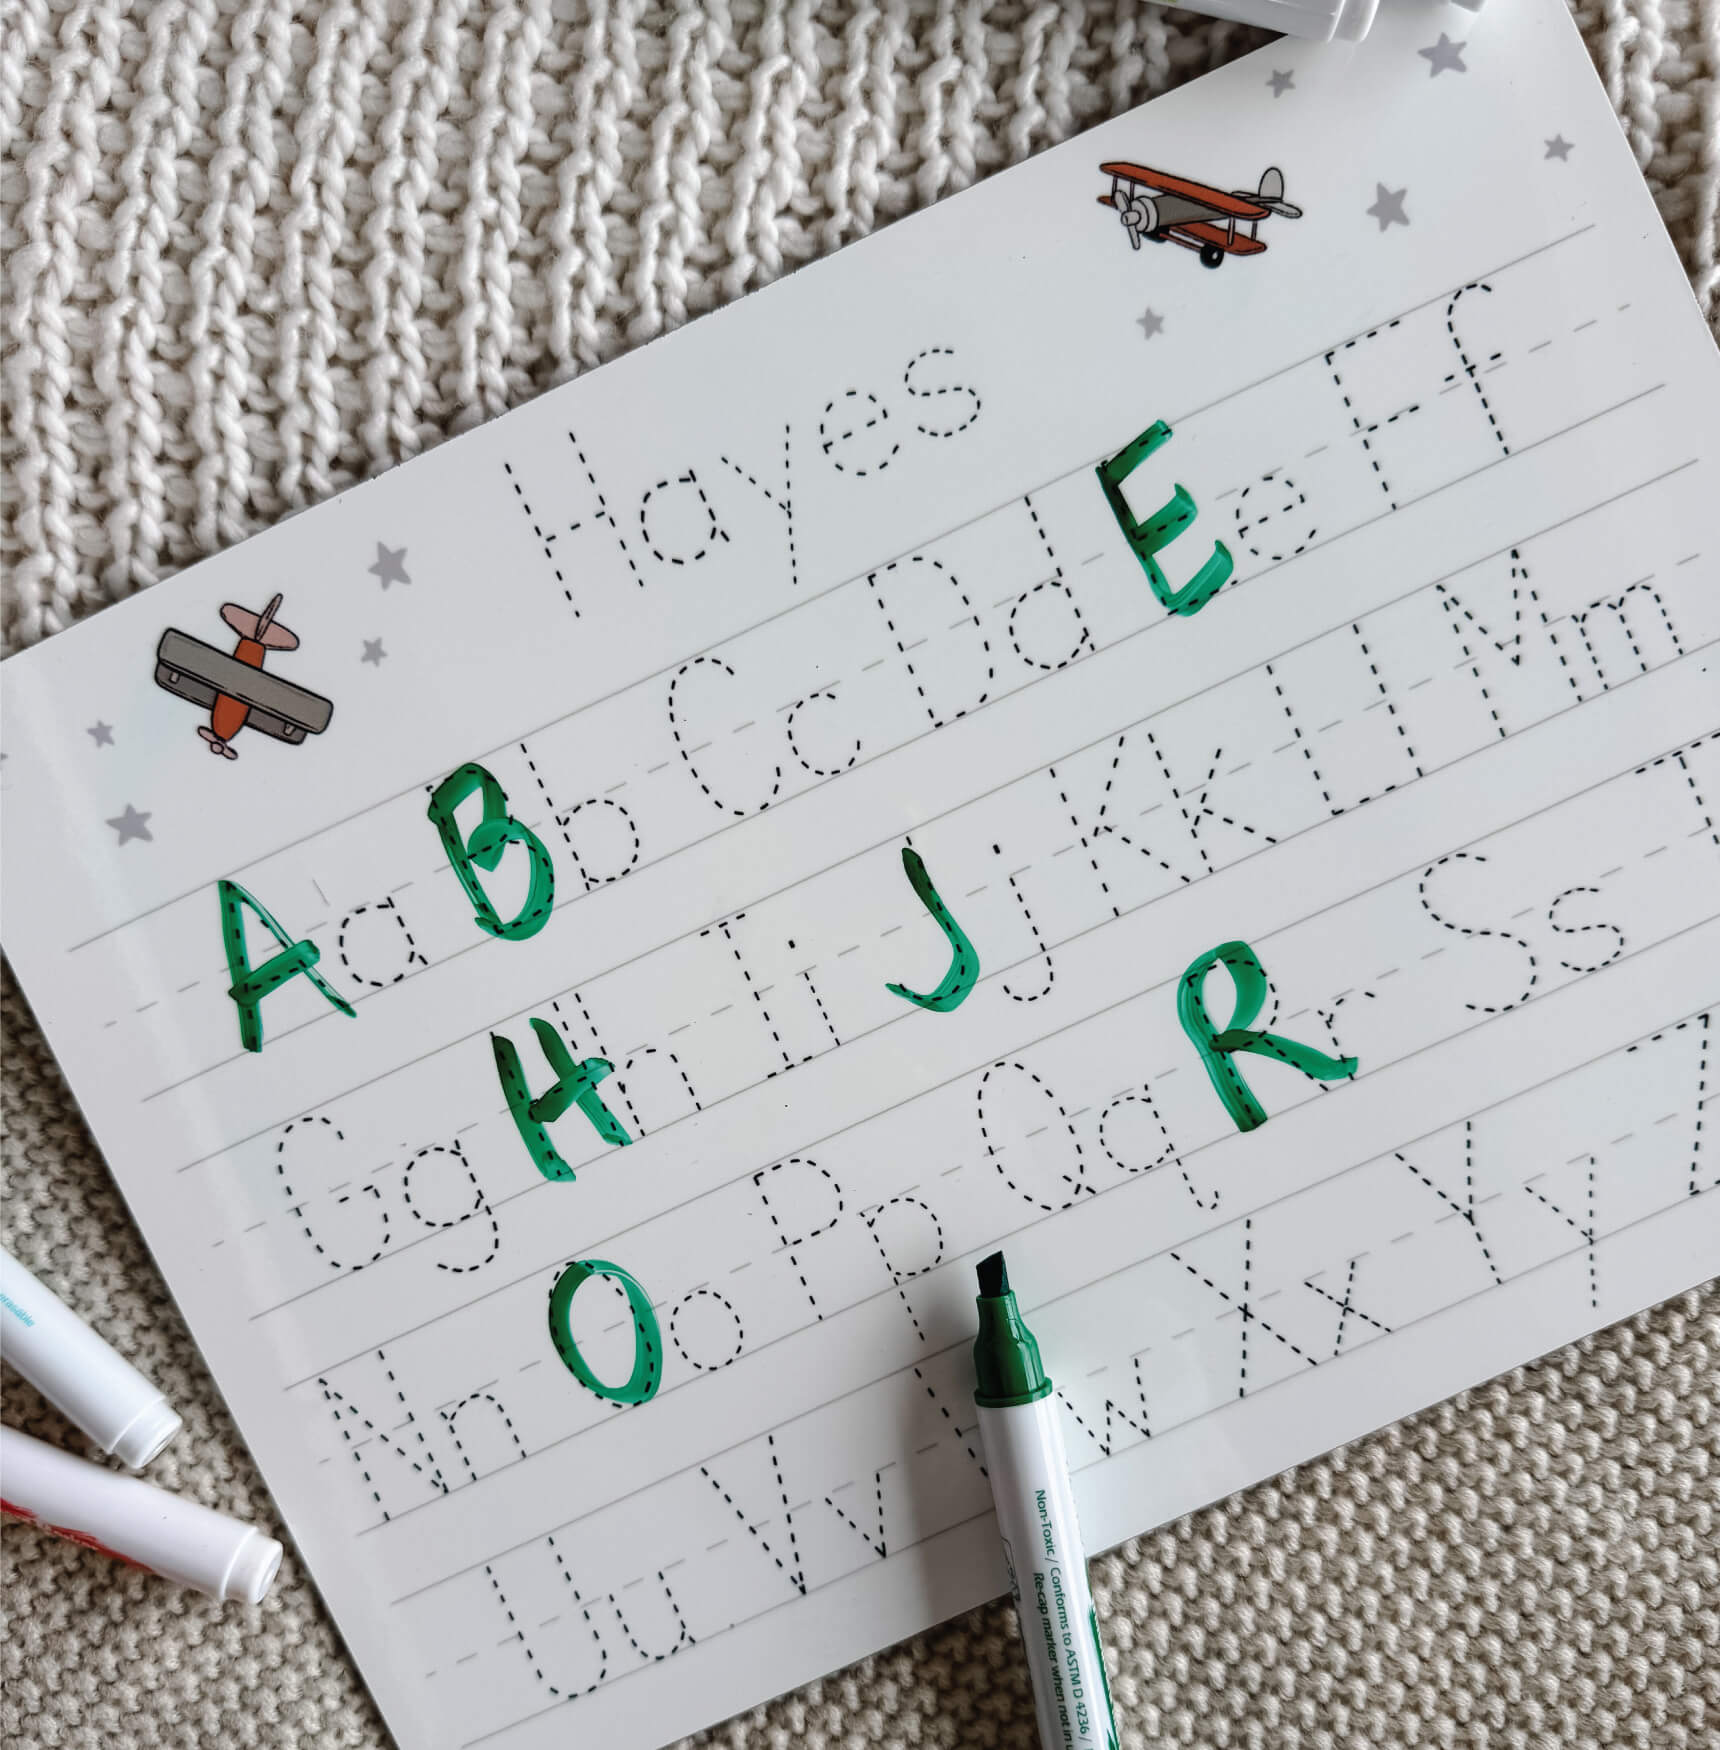 Hayes
Aa Bb Cc Dd Ee Ff
Gg Hh Ii Jj Kk Ll Mm
Nn Oo Pp Qq Rr Ss T
Uu Vv Ww Xx Yy Z
Non-Toxic / Conforms to ASTM D 4236 /
Re-cap marker when not in
erasable